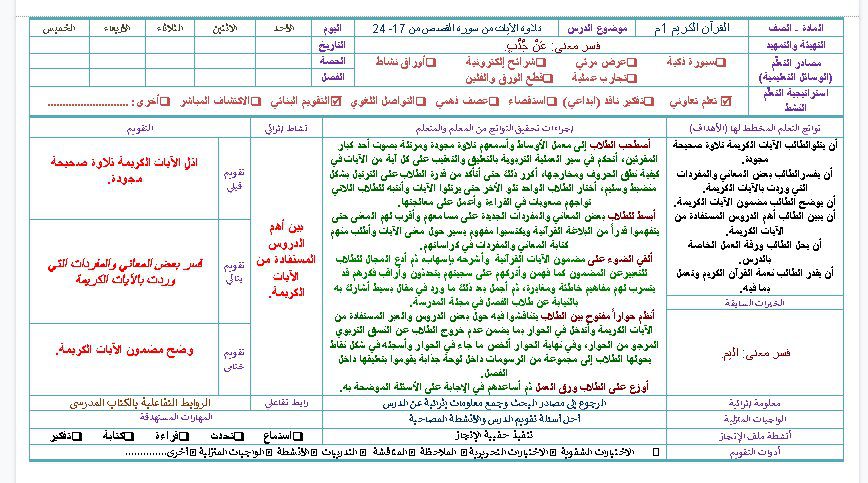 المادة - الصف القرآن الكريم 1م موضوع الدرس تلاوة الآيات من سورة القصص من 17- 24 اليوم الأحد الاثنين الثلاثاء الأربعاء الخميس
التهيئة والتمهيد فسر معنى: عَنْ جُنُبٍ. التاريخ
مصادر التعلم (الوسائل التعليمية) سبورة ذكية عرض مرئي شرائح إلكترونية أوراق نشاط الحصة
تجارب عملية قطع الورق والفلين الفصل
استراتيجية التعلم النشط تعلم تعاوني تفكير ناقد (إبداعي) استقصاء عصف ذهني التواصل اللغوي التقويم البنائي الاكتشاف المباشر أخرى: ........................
نواتج التعلم المخطط لها (الأهداف) إجراءات تحقيق النواتج من المعلم والمتعلم نشاط إثرائي التقويم
أن يتلو الطالب الآيات الكريمة تلاوة صحيحة
مجودة.
أن يفسر الطالب بعض المعاني والمفردات
التي وردت بالآيات الكريمة.
أن يوضح الطالب مضمون الآيات الكريمة.
أن يبين الطالب أهم الدروس المستفادة من
الآيات الكريمة.
أن يحل الطالب ورقة العمل الخاصة
بالدرس.
أن يقدر الطالب نعمة القرآن الكريم ونعمل
بما فيه.
الخبرات السابقة
فسر معنى: اليم.
أصطحب الطلاب إلى معمل الأوساط وأسمعهم تلاوة مجودة ومرتلة بصوت أحد كبار
المقرئين، أتحكم في سير العملية التربوية بالتعليق والتعقيب على كل آية من الآيات في
كيفية نطق الحروف ومخارجها، أكرر ذلك حتى أتأكد من قدرة الطلاب على الترتيل بشكل
منضبط وسليم، أختار الطلاب الواحد تلو الآخر حتى يرتلوا الآيات وأنتبه للطلاب اللاتي
تواجهم صعوبات في القراءة وأعمل على معالجتها.
أبسط للطلاب بعض المعاني والمفردات الجديدة على مسامعهم وأقرب لهم المعنى حتى
يتفهموا قدراً من البلاغة القرآنية ويكتسبوا مفهوم يسير حول معنى الآيات وأطلب منهم
كتابة المعاني والمفردات في كراساتهم.
ألقي الضوء على مضمون الآيات القرآنية وأشرحه بإسهاب، ثم أدع المجال للطلاب
للتعبير عن المضمون كما فهمن وأتركهم على سجيتهم يتحدثون وأراقب فكرهم قد
يتسرب لهم مفاهيم خاطئة ومغايرة، ثم أجمل بعد ذلك ما ورد في مقال بسيط أشارك به
بالنيابة عن طلاب الفصل في مجلة المدرسة.
أنظم حواراً مفتوح بين الطلاب يتناقشوا فيه حول بعض الدروس والعبر المستفادة من
الآيات الكريمة وأتدخل في الحوار بما يضمن عدم خروج الطلاب عن النسق التربوي
المرجو من الحوار، وفي نهاية الحوار ألخص ما جاء في الحوار وأسجله في شكل نقاط
يحولها الطلاب إلى مجموعة من الرسومات داخل لوحة جذابة يقوموا بتعليقها داخل
الفصل.
أوزع على الطلاب ورق العمل ثم أساعدهم في الإجابة على الأسئلة الموضحة به.
بين أهم
الدروس
المستفادة من
الآيات
الكريمة.
تقويم قبلي
اتلِ الآيات الكريمة تلاوة صحيحة
مجودة.
تقويم بنائي
فسر بعض المعاني والمفردات التي
وردت بالآيات الكريمة
تقويم ختامي
وضح مضمون الآيات الكريمة.
معلومة إثرائية الرجوع إلى مصادر البحث وجمع معلومات إثرائية عن الدرس رابط تفاعلي الروابط التفاعلية بالكتاب المدرسي
الواجبات المنزلية أحل أسئلة تقويم الدرس والأنشطة المصاحبة المهارات المستهدفة
أنشطة ملف الإنجاز تنفيذ حقيبة الإنجاز استماع تحدث قراءة كتابة تفكير
أدوات التقويم الاختبارات الشفوية الاختبارات التحريرية الملاحظة المناقشة التدريبات الأنشطة الواجبات المنزلية أخرى..............